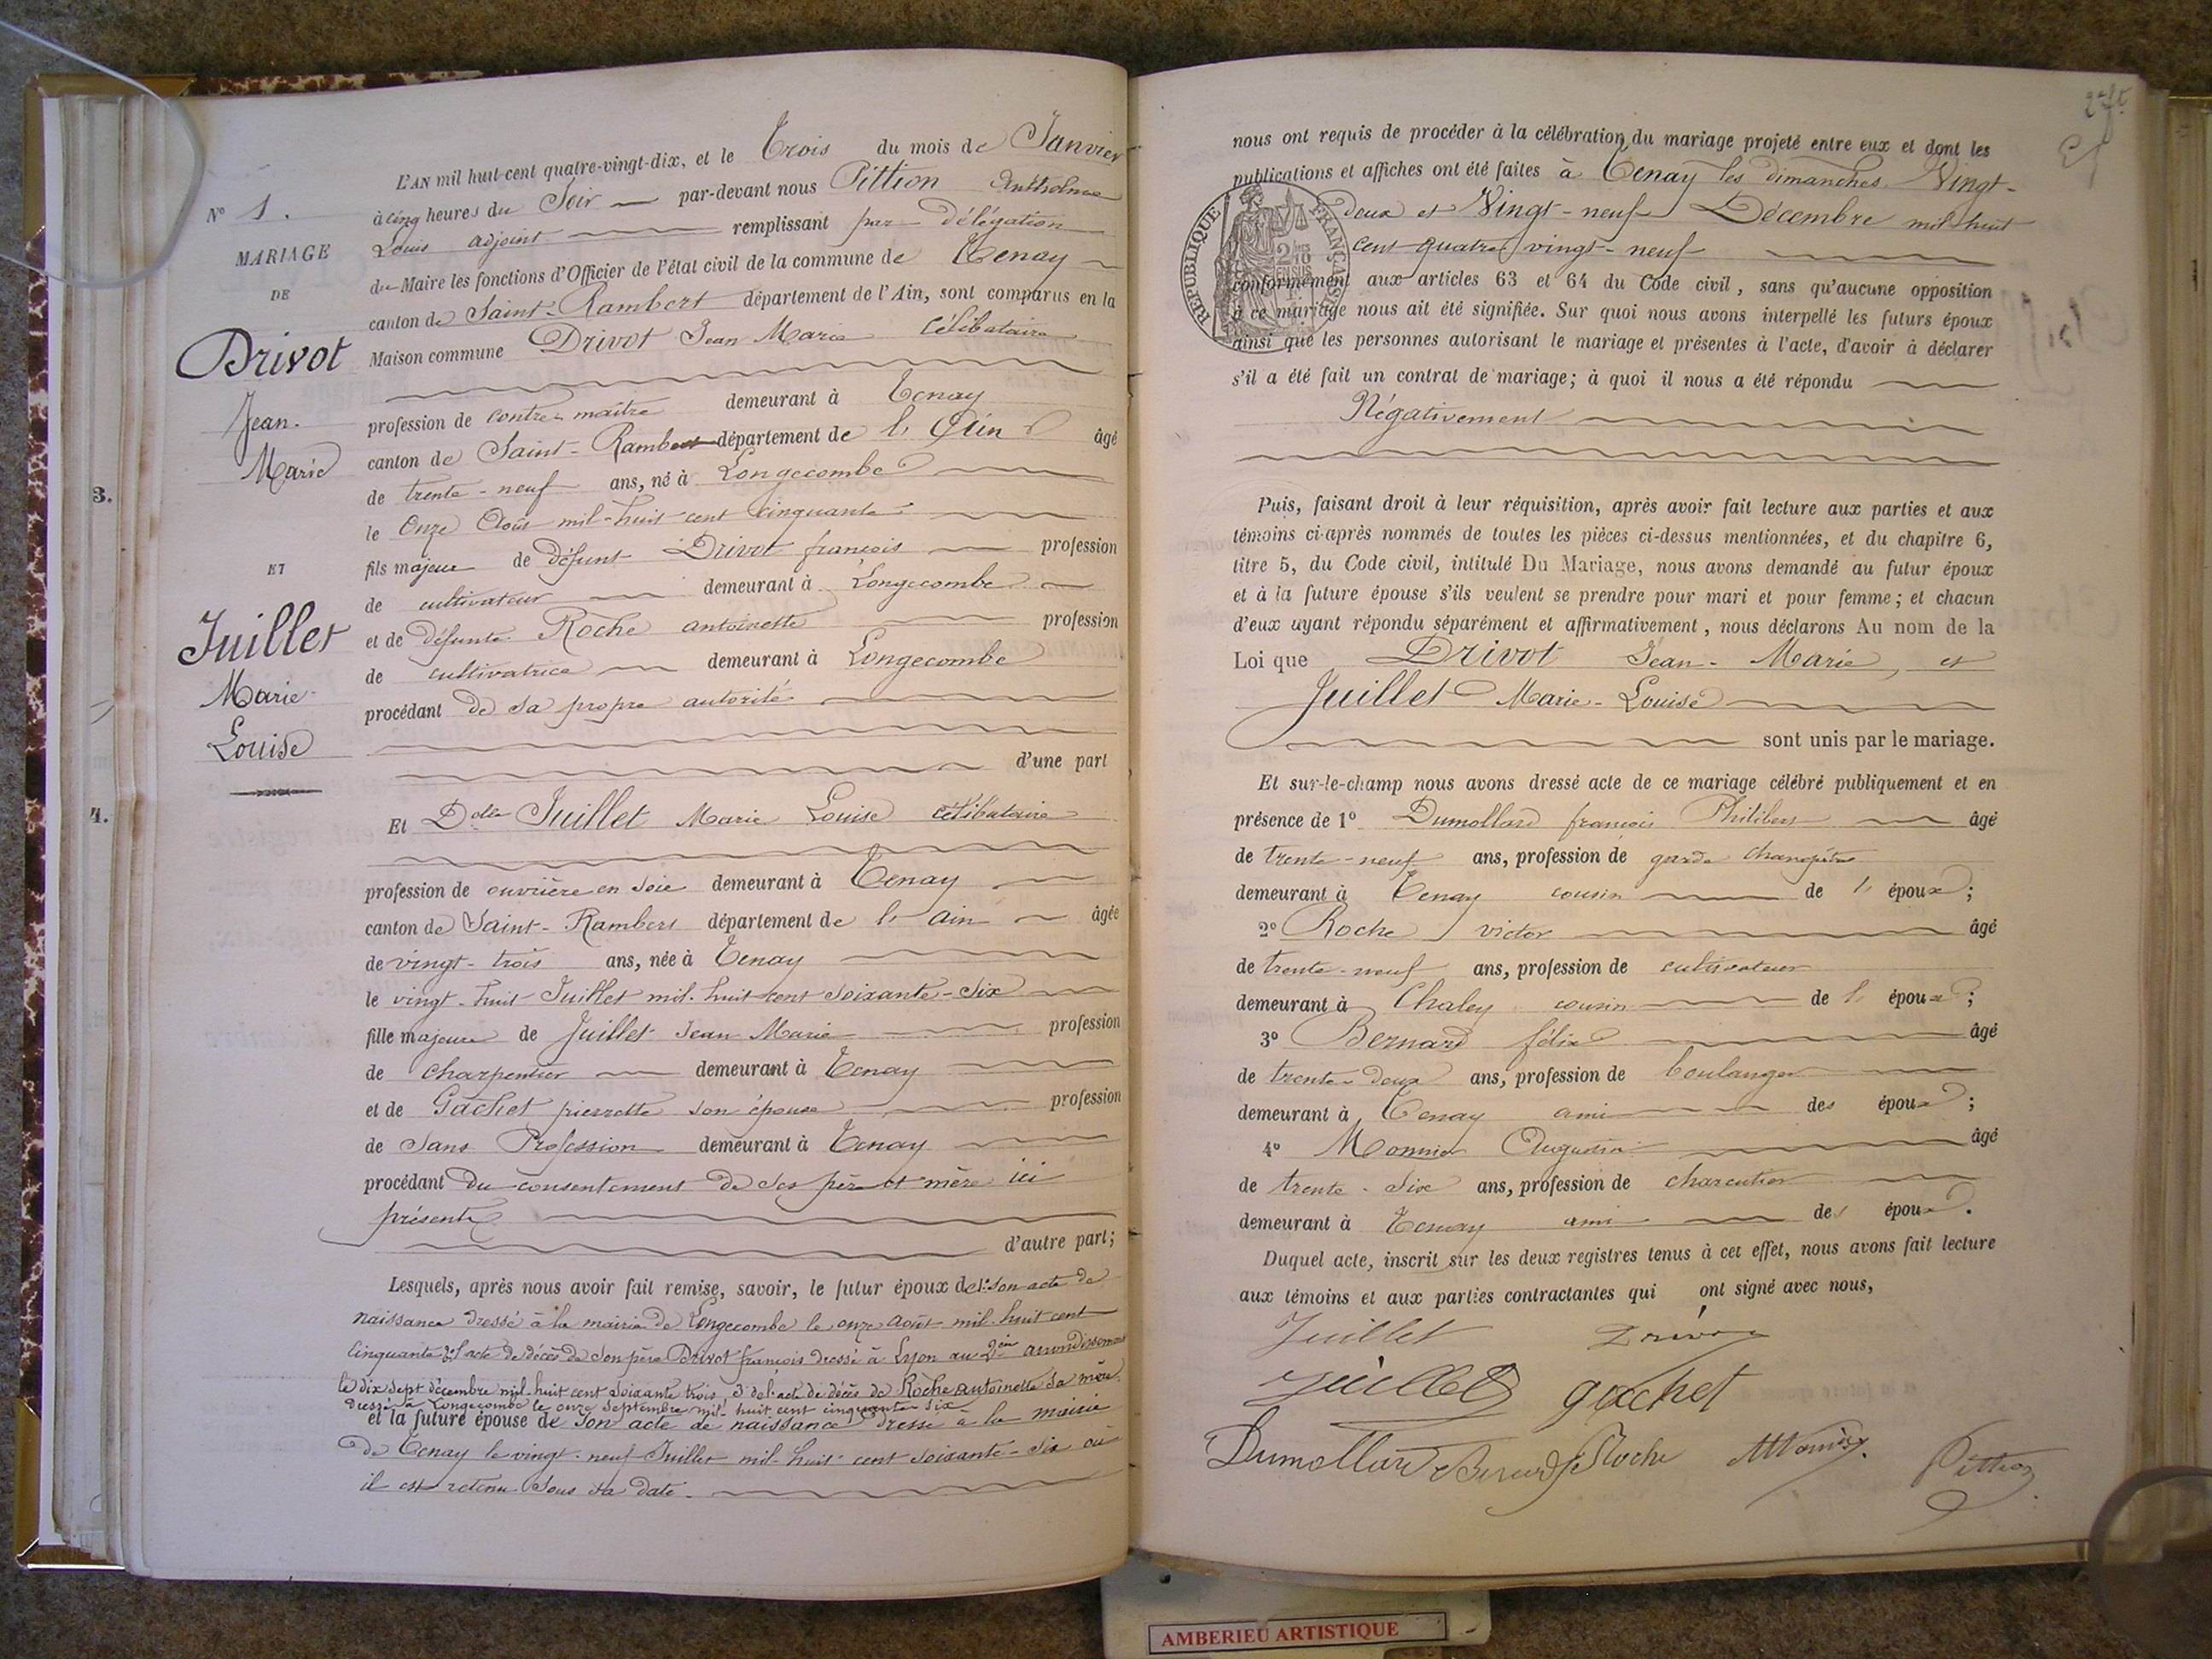 L'AN mil huit-cent quatre-vingt-dix, et le Trois du mois de Janvier
N° 1.
à cinq heures du Soir par-devant nous Pittion Anthelme
Louis adjoint remplissant par délégation
MARIAGE
du Maire les fonctions d'Officier de l'état civil de la commune de Tenay
DE
canton de Saint-Rambert département de l'Ain, sont comparus en la
Drivot
Maison commune Drivot Jean Marie célibataire
Jean-
Marie
profession de contre-maître demeurant à Tenay
canton de Saint-Rambert département de l'Ain âgé
3.
de trente-neuf ans, né à Longecombe
le Onze Août mil-huit cent cinquante
ET
fils majeur de défunt Drivot françois profession
de cultivateur demeurant à Longecombe
Juillet
Marie-
Louise
et de défunte Roche antoinette profession
de cultivatrice demeurant à Longecombe
procédant de sa propre autorité
d'une part
4.
Et Dlle Juillet Marie Louise célibataire
profession de ouvrière en soie demeurant à Tenay
canton de Saint-Rambert département de l'ain âgée
de vingt-trois ans, née à Tenay
le vingt-huit Juillet mil-huit cent soixante-six
fille majeure de Juillet Jean Marie profession
de charpentier demeurant à Tenay
et de Gachet pierrette son épouse profession
de Sans Profession demeurant à Tenay
procédant du consentement de ses père et mère ici
présents
d'autre part;
Lesquels, après nous avoir fait remise, savoir, le futur époux de 1° son acte de
naissance dressé à la mairie de Longecombe le onze août mil-huit cent
Cinquante 2° l'acte de décès de son père Drivot françois dressé à Lyon au 2ème arrondissement
le dix sept décembre mil-huit cent soixante trois, 3° de l'acte de décès de Roche antoinette sa mère
dressé à Longecombe le onze septembre mil-huit cent cinquante six
et la future épouse de Son acte de naissance dressé à la mairie
de Tenay le vingt-neuf Juillet mil-huit cent soixante-six où
il est retenu sous sa date.
nous ont requis de procéder à la célébration du mariage projeté entre eux et dont les
publications et affiches ont été faites à Tenay les dimanches Vingt-
deux et Vingt-neuf Décembre mil huit
cent quatre vingt-neuf
RÉPUBLIQUE FRANÇAISE
2/10 EN SUS
conformément aux articles 63 et 64 du Code civil, sans qu'aucune opposition
à ce mariage nous ait été signifiée. Sur quoi nous avons interpellé les futurs époux
ainsi que les personnes autorisant le mariage et présentes à l'acte, d'avoir à déclarer
s'il a été fait un contrat de mariage; à quoi il nous a été répondu
Négativement
Puis, faisant droit à leur réquisition, après avoir fait lecture aux parties et aux
témoins ci-après nommés de toutes les pièces ci-dessus mentionnées, et du chapitre 6,
titre 5, du Code civil, intitulé Du Mariage, nous avons demandé au futur époux
et à la future épouse s'ils veulent se prendre pour mari et pour femme; et chacun
d'eux ayant répondu séparément et affirmativement, nous déclarons Au nom de la
Loi que Drivot Jean-Marie, et
Juillet Marie-Louise
sont unis par le mariage.
Et sur-le-champ nous avons dressé acte de ce mariage célébré publiquement et en
présence de 1° Dumollard françois Philibert âgé
de trente-neuf ans, profession de garde champêtre
demeurant à Tenay cousin de l'époux;
2° Roche victor âgé
de trente-neuf ans, profession de cultivateur
demeurant à Chaley cousin de l'époux;
3° Bernard félix âgé
de trente-deux ans, profession de boulanger
demeurant à Tenay ami des époux;
4° Monnier Augustin âgé
de trente-six ans, profession de charcutier
demeurant à Tenay ami des époux.
Duquel acte, inscrit sur les deux registres tenus à cet effet, nous avons fait lecture
aux témoins et aux parties contractantes qui ont signé avec nous,
Juillet Drivot
Juillet gachet
Dumollard Roche Pittion
AMBERIEU ARTISTIQUE